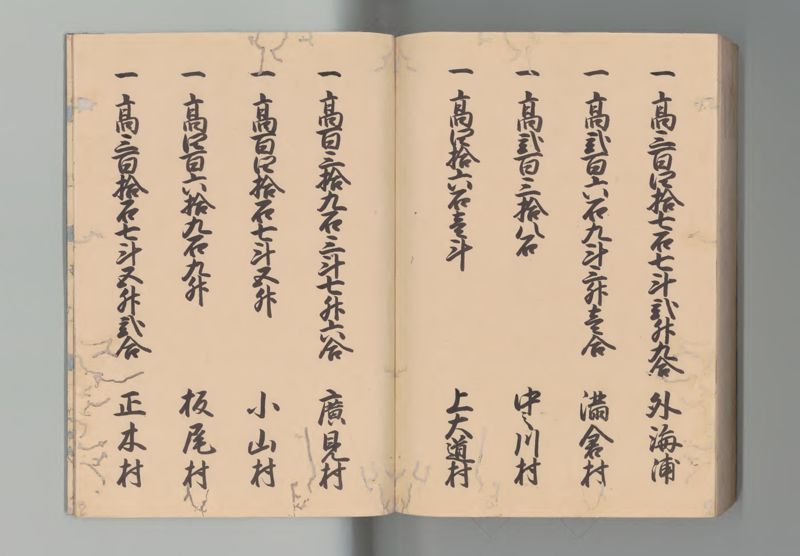 一 高三百四拾七石七斗弐升九合 外海浦
一 高弐百六石九斗六升壱合 満倉村
一 高弐百三拾八石 中ノ川村
一 高四拾六石壱斗 上大道村
一 高百三拾九石三斗七升六合 廣見村
一 高百四拾石七斗五升 小山村
一 高四百六拾九石九升 板尾村
一 高三百拾石七斗五升弐合 正木村